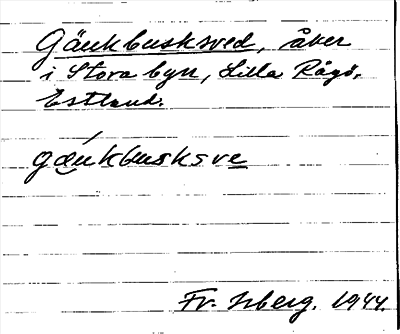 Gäukbusksved, åker
i Stora byn, Lilla Rågö,
Estland.
gäukbusksve
Fr. Isberg. 1944.